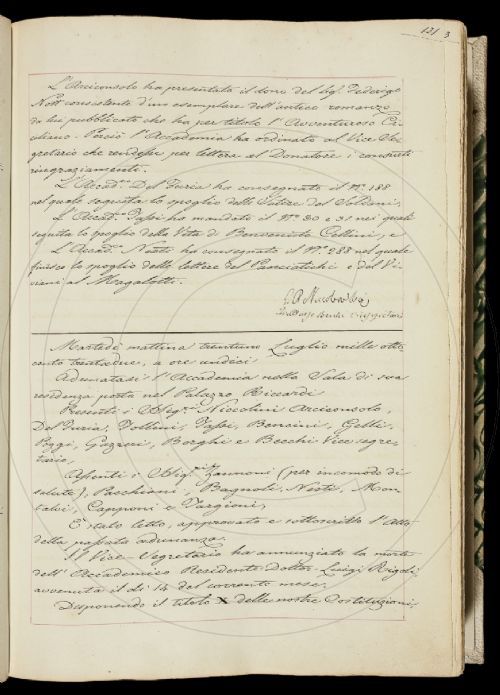 131 3
L'Arciconsolo ha presentato il dono del Sig. Federigo
Nott consistente d'un esemplare dell'antico romanzo
da lui pubblicato che ha per titolo l'Avventuroso Ci-
ciliano. Perciò l'Accademia ha ordinato al Vice Se-
gretario che rendesse per lettera al Donatore i consueti
ringraziamenti.
L'Accad.co Del Furia ha consegnato il N.o 188
nel quale seguita lo spoglio delle Satire del Soldani,
L'Accad.co Tassi ha mandato il N.o 30 e 31 nei quali
seguita lo spoglio della Vita di Benvenuto Cellini, e
L'Accad.co Nesti ha consegnato il N.o 288 nel quale
finisce lo spoglio delle lettere del Panciatichi e del Vi-
viani al Magalotti.
Martedì mattina trentuno Luglio mille otto
cento trentadue, a ore undici
Adunatasi l'Accademia nella Sala di sua
residenza posta nel Palazzo Riccardi
Presenti i Sigg.ri Niccolini Arciconsolo,
Del Furia, Follini, Tassi, Bencini, Gelli,
Poggi, Gazzeri, Borghi e Becchi Vice segre-
tario,
Assenti i Sigg.ri Zannoni (per incomodo di
salute), Pacchioni, Bagnoli, Nesti, Mon-
talvi, Capponi e Targioni,
È stato letto, approvato e sottoscritto l'Atto
della passata adunanza.
Il Vice-Segretario ha annunziato la morte
dell'Accademico Residente Dottor Luigi Rigoli
avvenuta il dì 14 del corrente mese.
Disponendo il titolo X delle nostre Costituzioni,